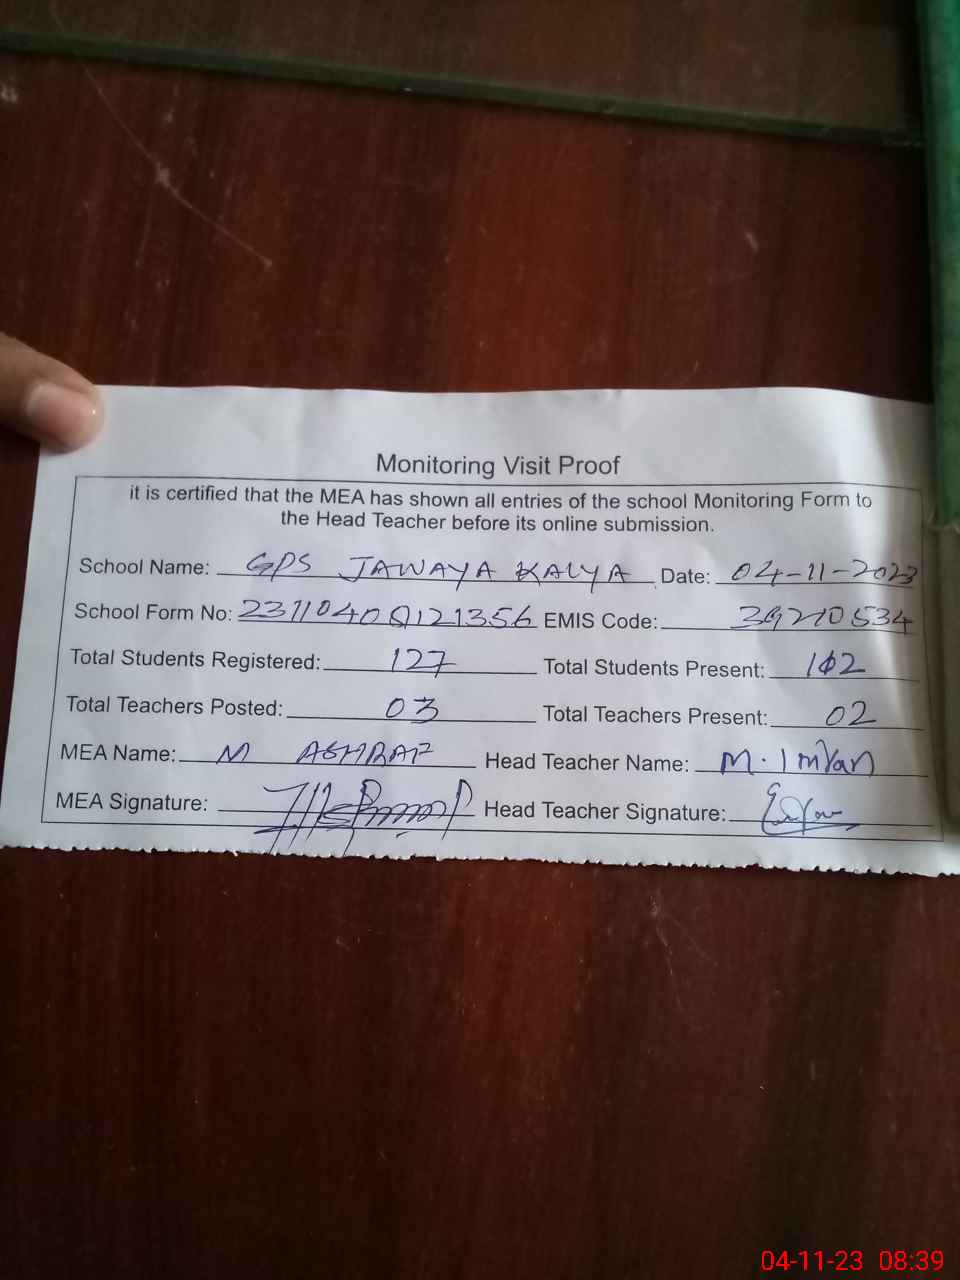 Monitoring Visit Proof
it is certified that the MEA has shown all entries of the school Monitoring Form to
the Head Teacher before its online submission.
School Name: GPS JAWAYA KALYA Date: 04-11-2023
School Form No: EMIS Code: 39210534
Total Students Registered: 127 Total Students Present: 102
Total Teachers Posted: 03 Total Teachers Present: 02
MEA Name: M ASHRAF Head Teacher Name: M. Imran
MEA Signature: Head Teacher Signature:
04-11-23 08:39